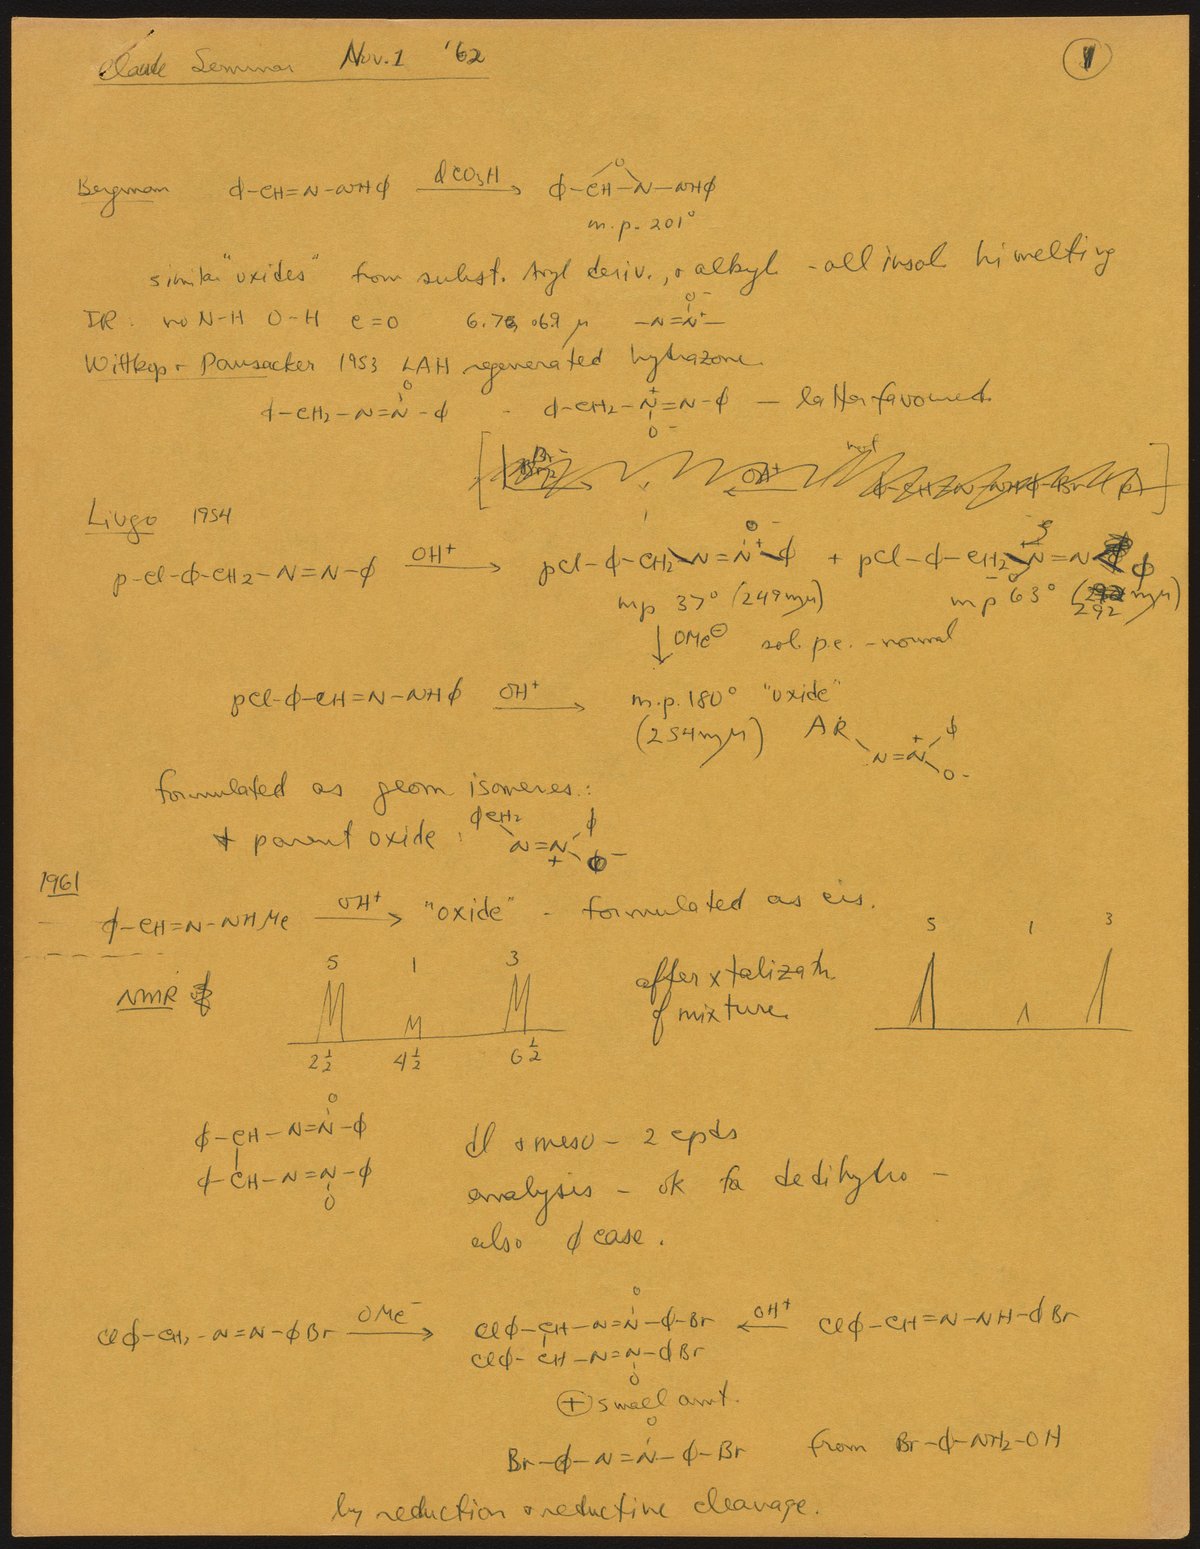 Claude Seminar Nov. 1 '62
1
Bergman ϕ-CH=N-NHϕ ϕCO3H → ϕ-CH-N-NHϕ
O
m.p. 201°
similar "oxides" from subst. Aryl deriv., + alkyl - all insol hi melting
IR: no N-H O-H C=O 6.7 .69 μ -N=N+-
O-
Witkop + Pausacker 1953 LAH regenerated hydrazone.
ϕ-CH2-N=N-ϕ - ϕ-CH2-N=N-ϕ — latter favoured
O + O-
OH+
Livgo 1954
p-Cl-ϕ-CH2-N=N-ϕ OH+ → pCl-ϕ-CH2-N=N-ϕ + pCl-ϕ-CH2-N=N ϕ
mp 37° (249mμ) mp 63° (292 mμ)
↓ OMe⊖ sol. p.e. - normal
pCl-ϕ-CH=N-NHϕ OH+ → m.p. 180° "oxide"
(254mμ) AR N=N+ ϕ O-
formulated as geom isomeres:
+ parent oxide: ϕCH2 N=N+ ϕ O-
1961
ϕ-CH=N-NHMe OH+ → "oxide" - formulated as cis.
NMR 5 1 3
2½ 4½ 6½
after xtalizatn.
of mixture
5 1 3
O
ϕ-CH-N=N-ϕ
ϕ-CH-N=N-ϕ
O
dl + meso - 2 cpds
analysis - ok for dedihydro -
also ϕ case.
Clϕ-CH2-N=N-ϕBr OMe- → Clϕ-CH-N=N-ϕ-Br ← OH+ Clϕ-CH=N-NH-ϕBr
Clϕ-CH-N=N-ϕBr
O
⊕ small amt.
O
Br-ϕ-N=N-ϕ-Br from Br-ϕ-NH2-OH
by reduction + reductive cleavage.